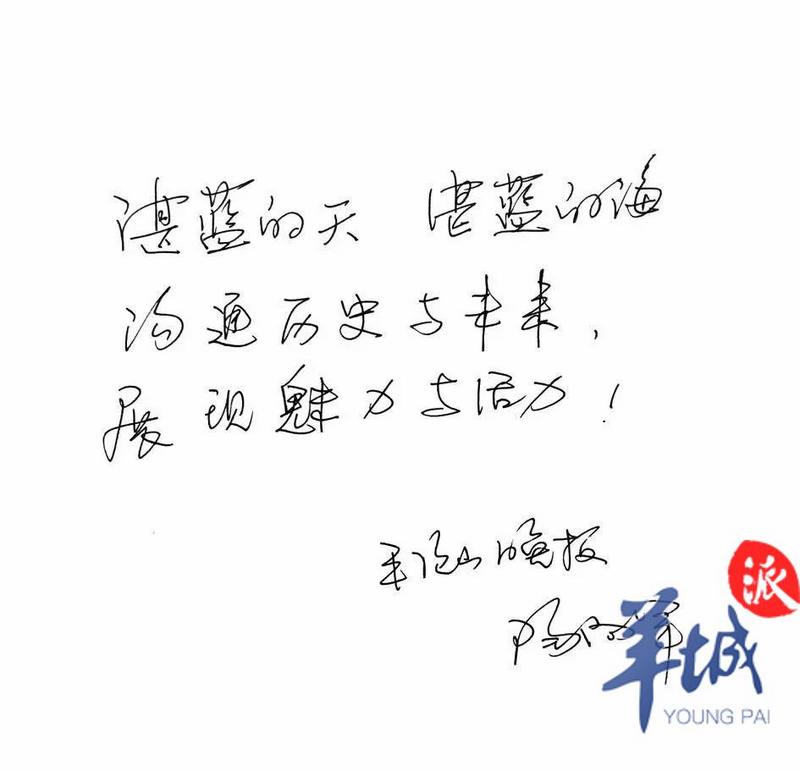 湛蓝的天 湛蓝的海
沟通历史与未来,
展现魅力与活力!
羊城晚报
羊城派
YOUNG PAI